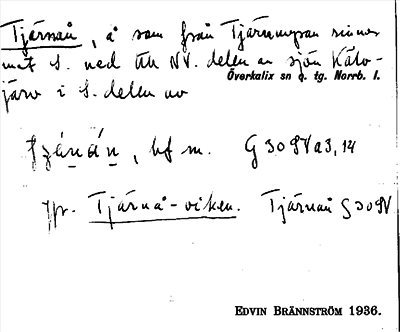 Tjärnån, å som från Tjärnmyran rinner
mot S. ned till NV. delen av sjön Kälv-
Överkalix sn o. tg. Norrb. l.
järv i S. delen av
bf m. G 3098 a 3, 14
Jfr. Tjärnå-viken. Tjärnån G 3098
EDVIN BRÄNNSTRÖM 1936.